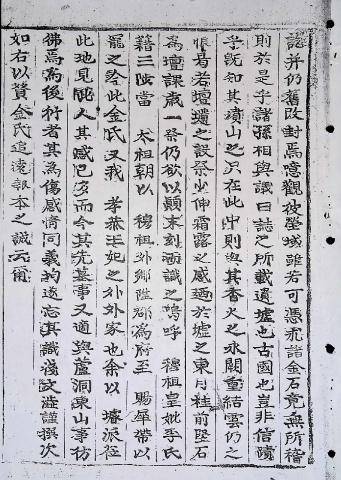 誌并仍舊改封焉噫觀彼塋域雖若可憑求諸金石竟無所稽
則於是乎諸孫相與議曰誌之所載遺墟也古國也豈非信蹟
乎旣知其墳山之只在此中則與其香火之永闕重結雲仍之
悵曷若壇墠之設祭少伸霜露之感廼於墟之東月桂前堅石
為壇課歲一祭仍欲以顚末刻而識之嗚呼 穆祖皇妣李氏
籍三陟當 太祖朝以 穆祖外鄉陞郡為府至 賜犀帶以
寵之矣此金氏又我 孝恭王妃之外外家也余以 璿派莅
此地見邑人其感已多而今其先墓事又適與蘆洞東山事彷
彿焉為後衍者其為傷感情同義均遂忘其識淺文澁謹撰次
如右以贊金氏追遠報本之誠云爾